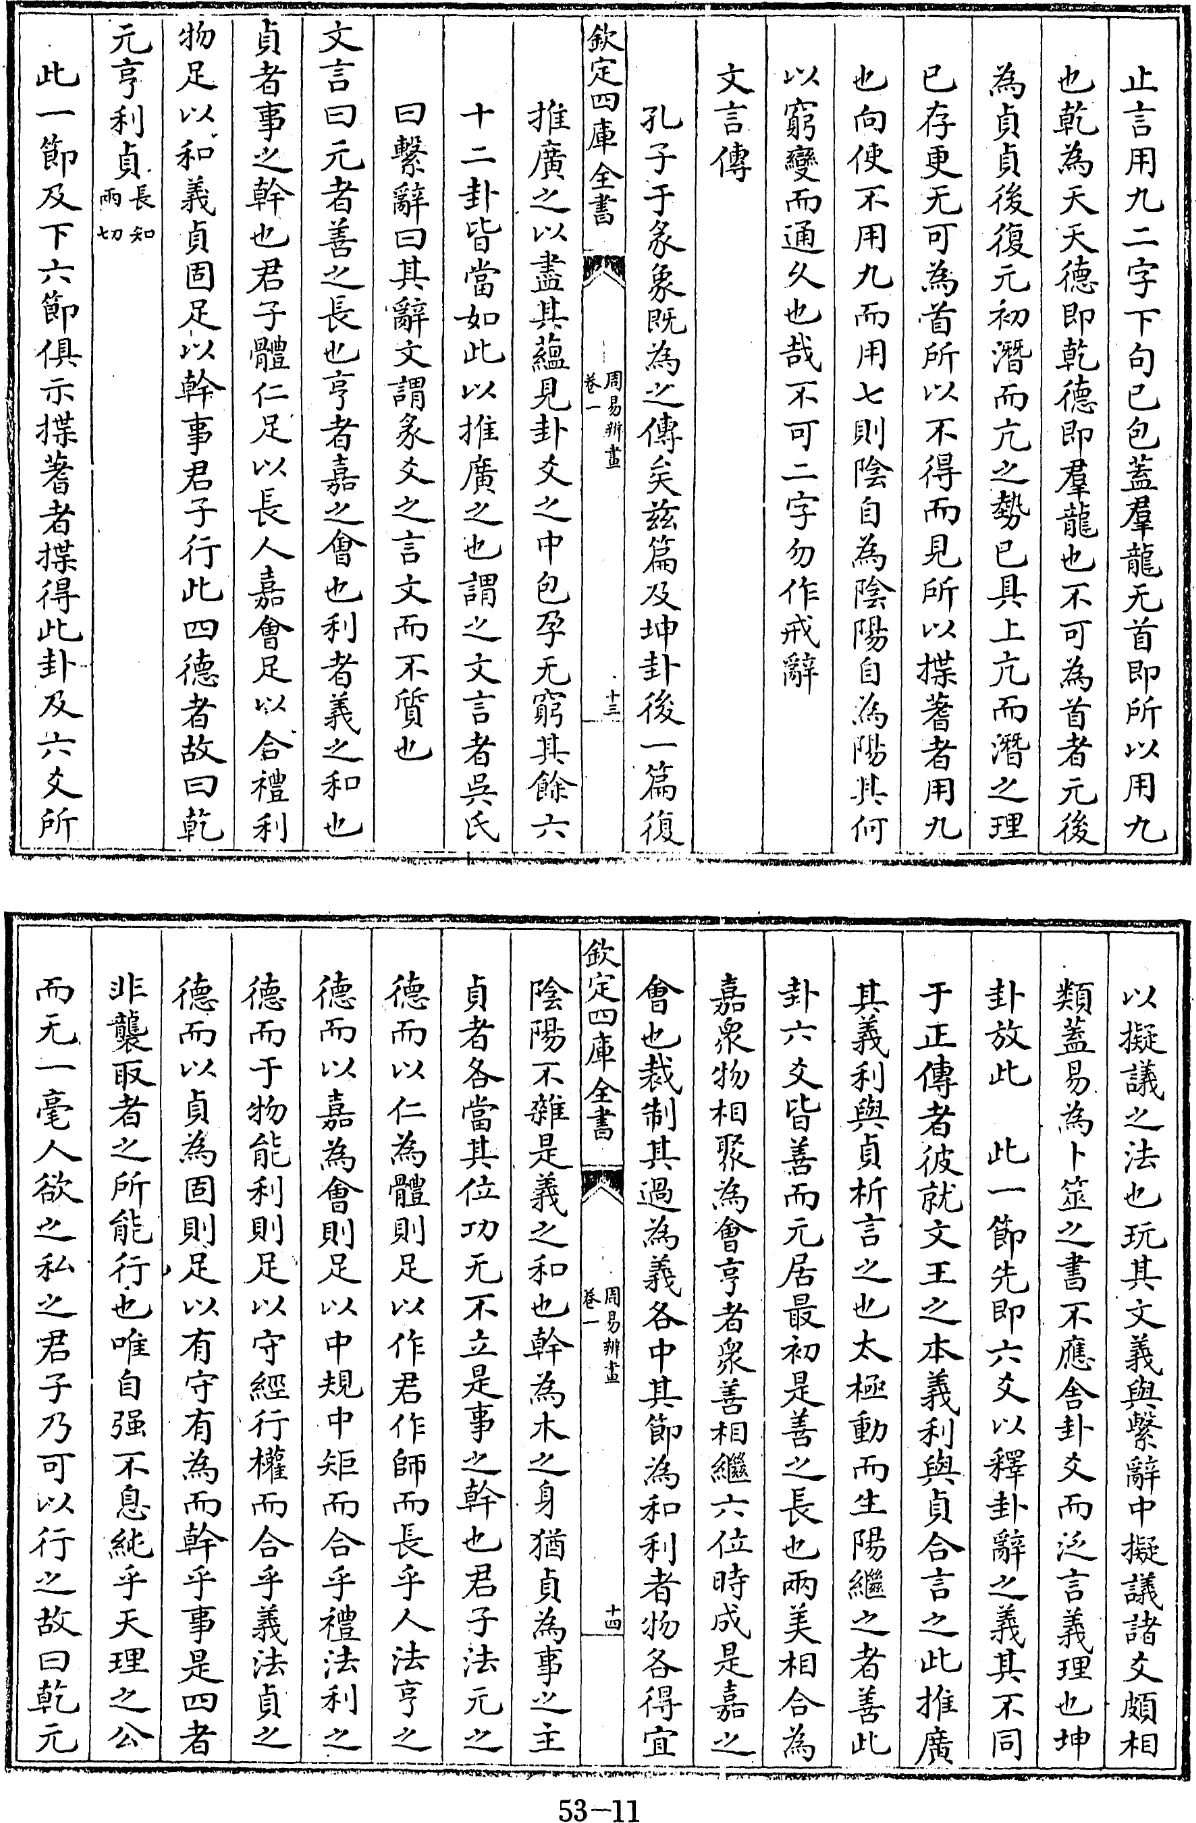 止言用九二字下句已包蓋羣龍无首即所以用九
也乾為天天德即乾德即羣龍也不可為首者元後
為貞貞後復元初潛而亢之勢已具上亢而潛之理
已存更无可為首所以不得而見所以揲蓍者用九
也向使不用九而用七則陰自為陰陽自為陽其何
以窮變而通久也哉不可二字勿作戒辭
文言傳
孔子于彖象既為之傳矣兹篇及坤卦後一篇復
欽定四庫全書
周易辨畫
卷一
十三
推廣之以盡其蘊見卦爻之中包孕无窮其餘六
十二卦皆當如此以推廣之也謂之文言者吳氏
曰繫辭曰其辭文謂彖爻之言文而不質也
文言曰元者善之長也亨者嘉之會也利者義之和也
貞者事之幹也君子體仁足以長人嘉會足以合禮利
物足以和義貞固足以幹事君子行此四德者故曰乾
元亨利貞長知兩切
此一節及下六節俱示揲蓍者揲得此卦及六爻所
以擬議之法也玩其文義與繫辭中擬議諸爻頗相
類蓋易為卜筮之書不應舍卦爻而泛言義理也坤
卦放此 此一節先即六爻以釋卦辭之義其不同
于正傳者彼就文王之本義利與貞合言之此推廣
其義利與貞析言之也太極動而生陽繼之者善此
卦六爻皆善而元居最初是善之長也兩美相合為
嘉衆物相聚為會亨者衆善相繼六位時成是嘉之
會也裁制其過為義各中其節為和利者物各得宜
欽定四庫全書
周易辨畫
卷一
十四
陰陽不雜是義之和也幹為木之身猶貞為事之主
貞者各當其位功无不立是事之幹也君子法元之
德而以仁為體則足以作君作師而長乎人法亨之
德而以嘉為會則足以中規中矩而合乎禮法利之
德而于物能利則足以守經行權而合乎義法貞之
德而以貞為固則足以有守有為而幹乎事是四者
非襲取者之所能行也唯自强不息純乎天理之公
而无一毫人欲之私之君子乃可以行之故曰乾元
53-11